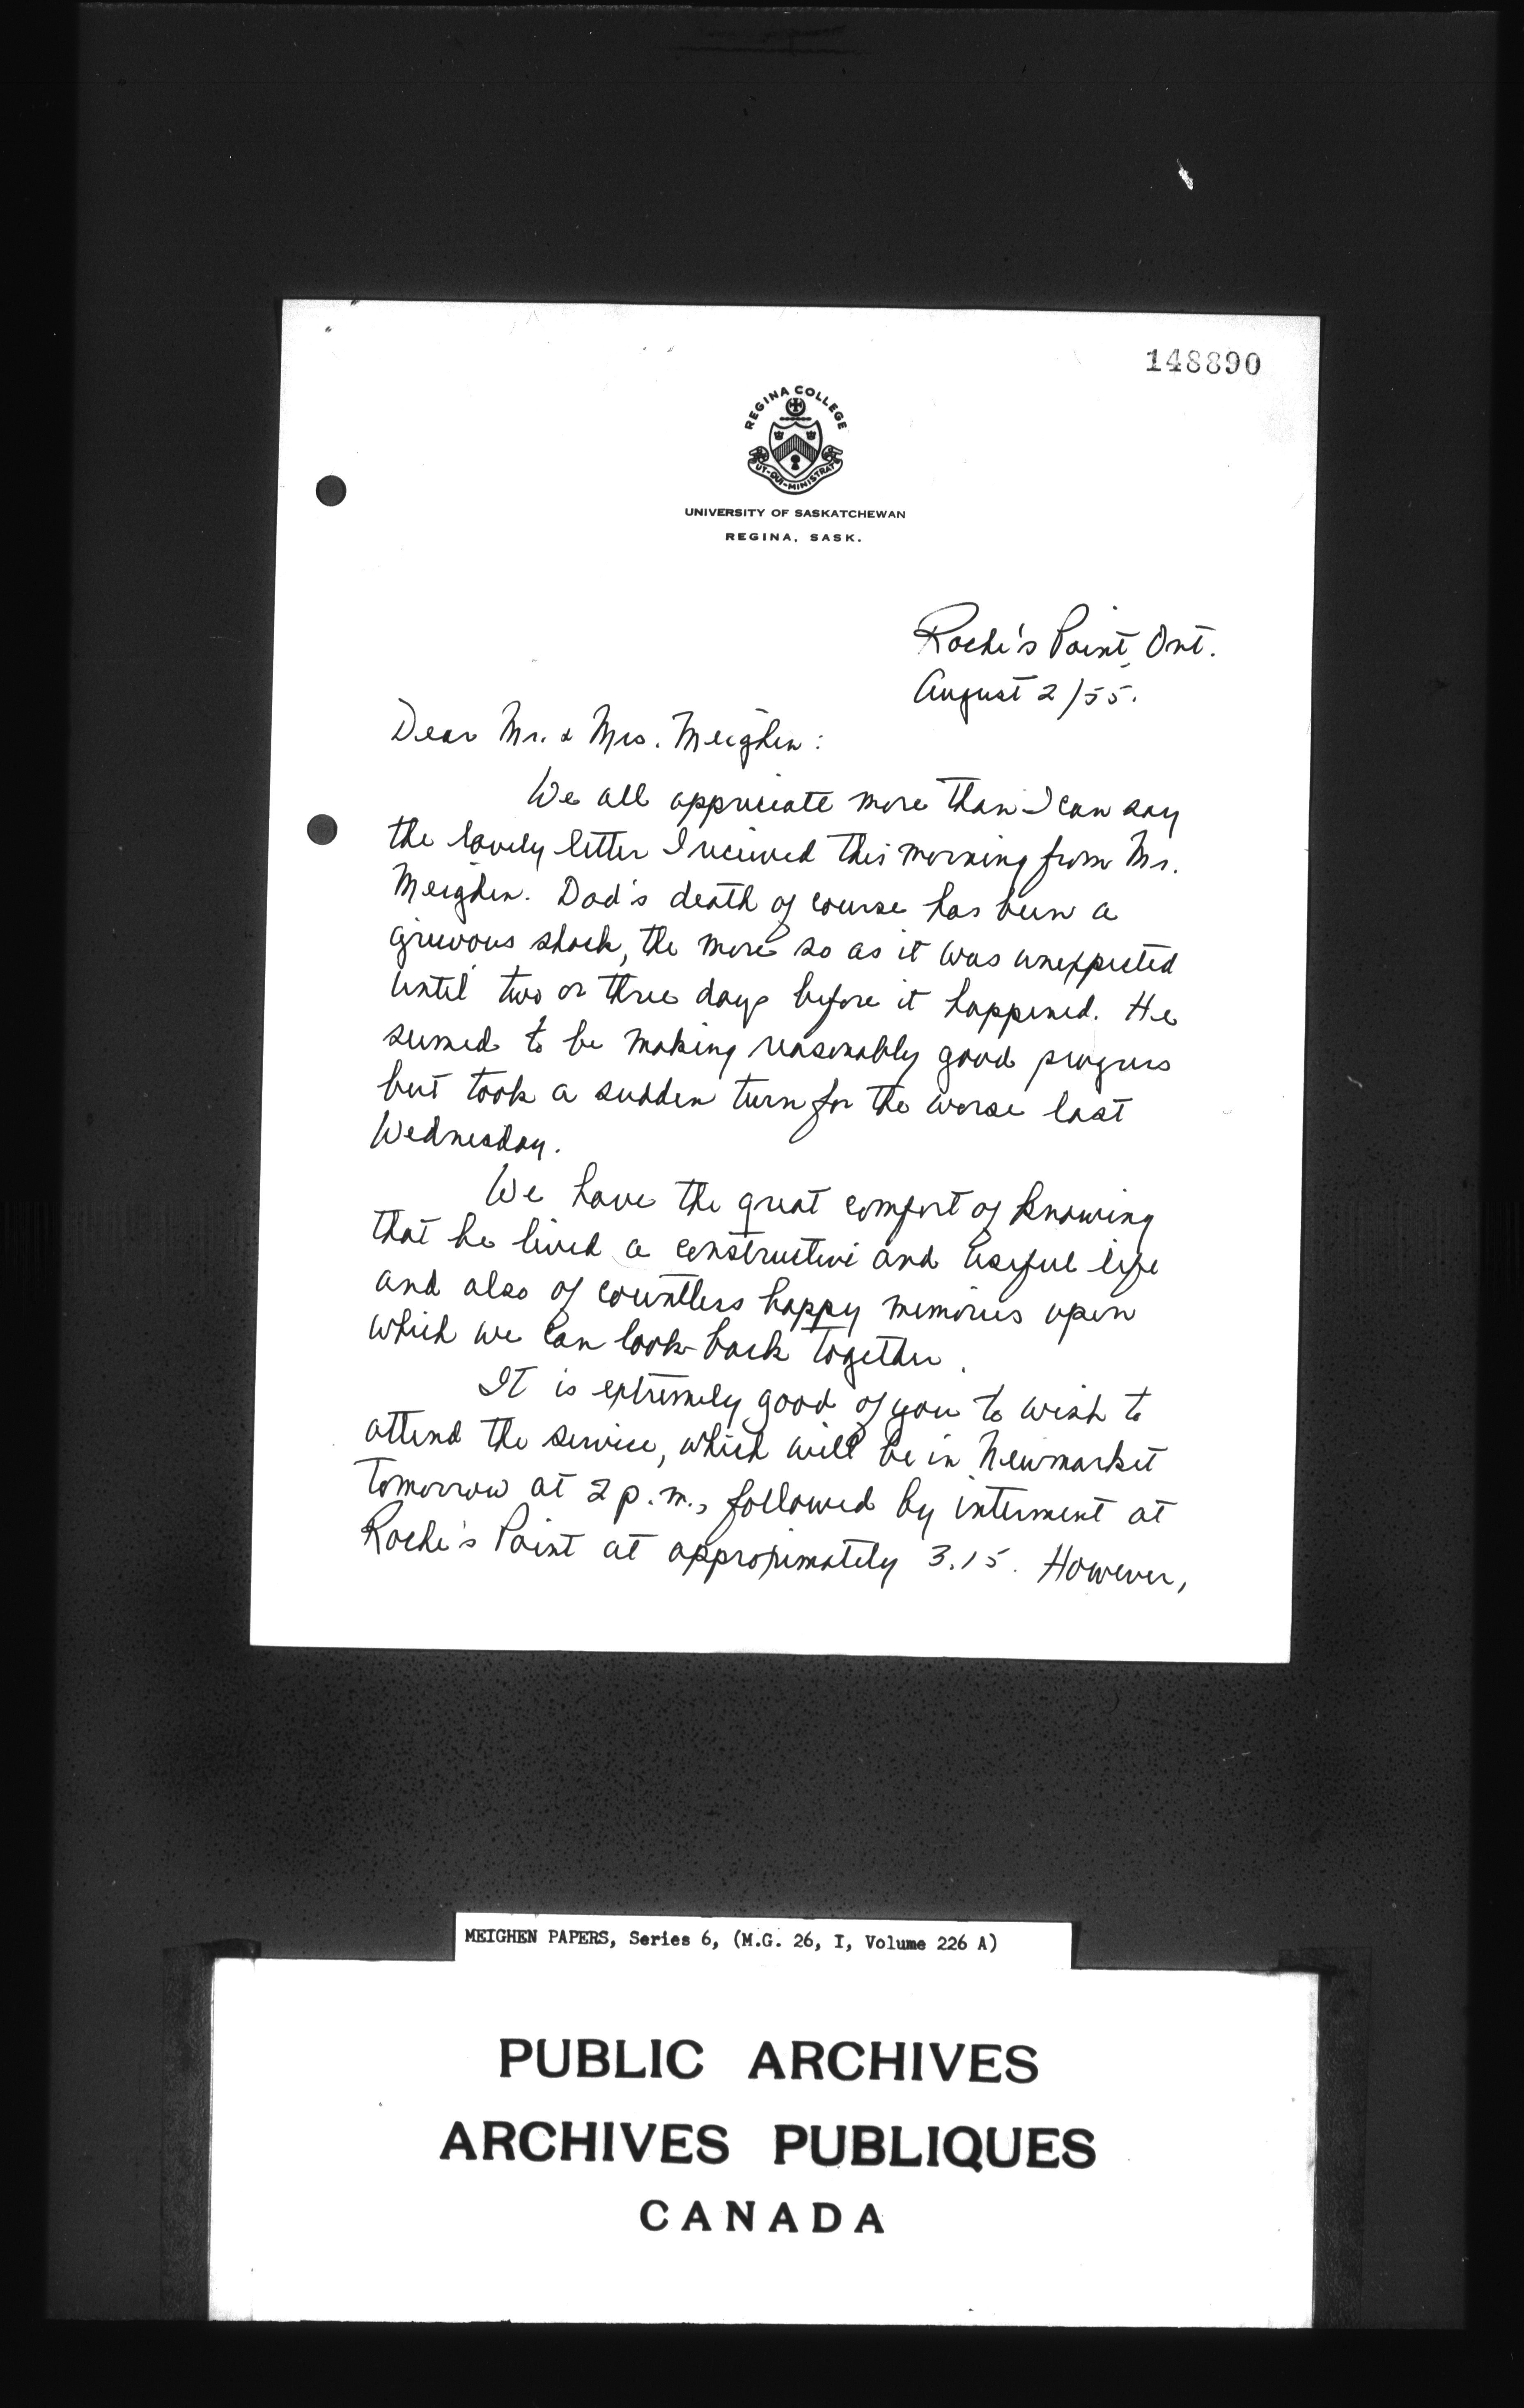 148890
REGINA COLLEGE
UT-QUI-MINISTRAT
UNIVERSITY OF SASKATCHEWAN
REGINA, SASK.
Roche's Point, Ont.
August 2/55.
Dear Mr. & Mrs. Meighen:
We all appreciate more than I can say
the lovely letter I received this morning from Mr.
Meighen. Dad's death of course has been a
grievous shock, the more so as it was unexpected
until two or three days before it happened. He
seemed to be making reasonably good progress
but took a sudden turn for the worse last
Wednesday.
We have the great comfort of knowing
that he lived a constructive and useful life
and also of countless happy memories upon
which we can look back together.
It is extremely good of you to wish to
attend the service, which will be in Newmarket
tomorrow at 2 p.m., followed by interment at
Roche's Point at approximately 3.15. However,
MEIGHEN PAPERS, Series 6, (M.G. 26, I, Volume 226 A)
PUBLIC ARCHIVES
ARCHIVES PUBLIQUES
CANADA